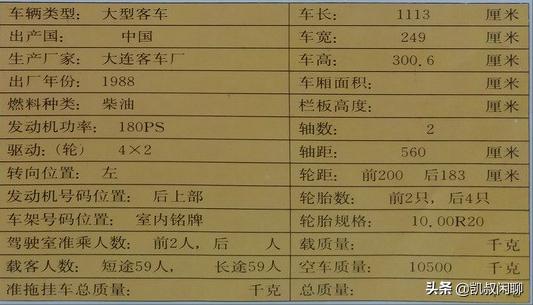 车辆类型： 大型客车 车长： 1113 厘米
出产国： 中国 车宽： 249 厘米
生产厂家： 大连客车厂 车高： 300.6 厘米
出厂年份：1988 车厢面积： 厘米
燃料种类：柴油 栏板高度： 厘米
发动机功率： 180PS 轴数： 2
驱动：（轮） 4×2 轴距： 560 厘米
转向位置： 左 轮距： 前200 后183 厘米
发动机号码位置： 后上部 轮胎数： 前2只，后4只
车架号码位置： 室内铭牌 轮胎规格： 10.00R20
驾驶室准乘人数： 前2人，后 人 载质量： 千克
载客人数：短途59人， 长途59人 空车质量： 10500 千克
准拖挂车总质量： 千克 总质量：
头条 @凯叔闲聊